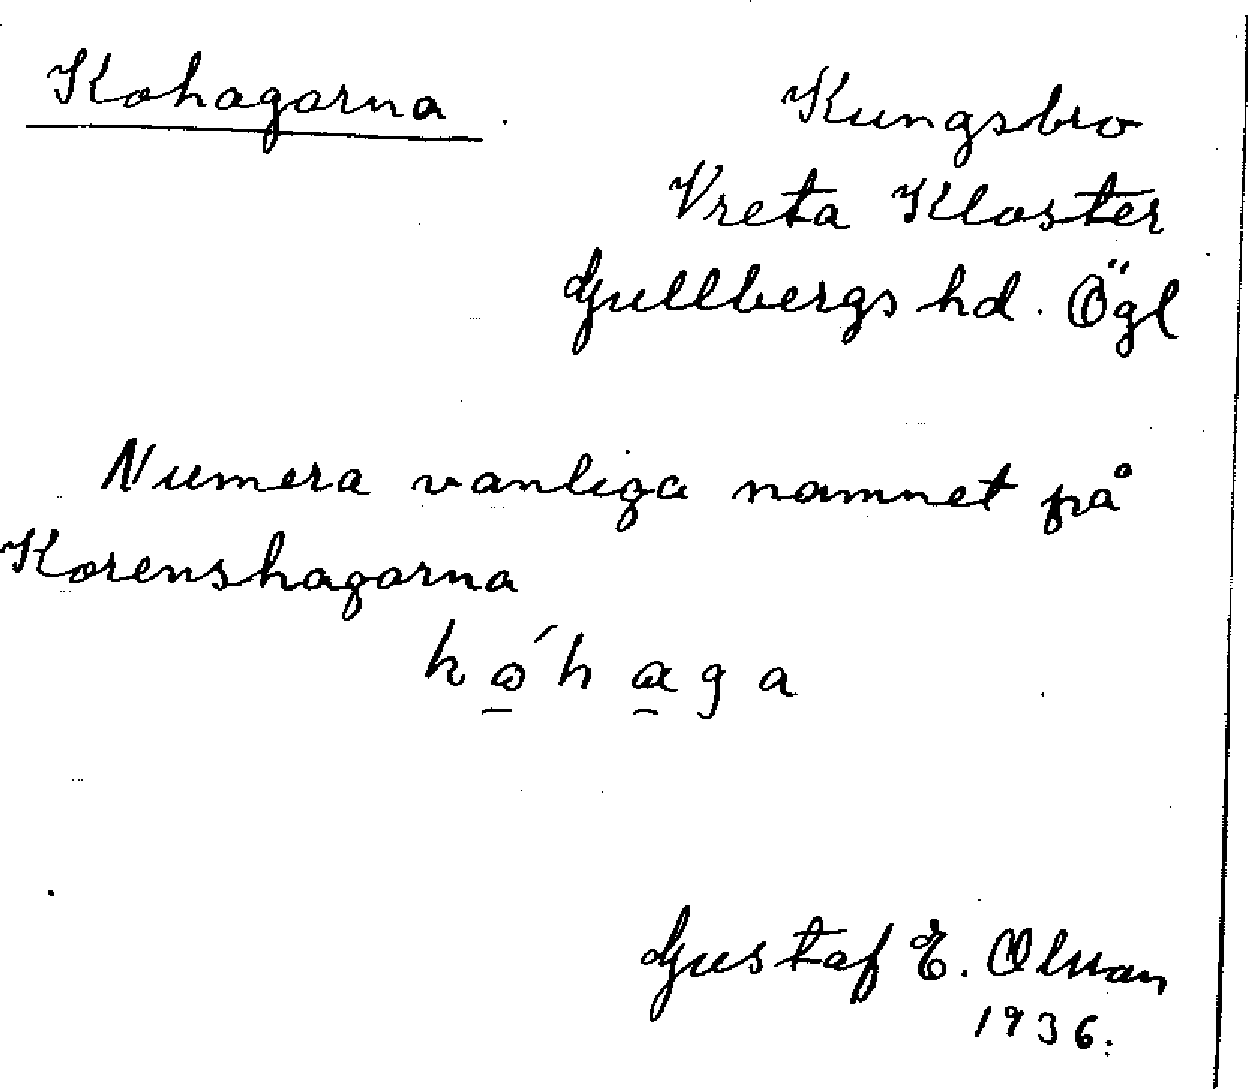 Kohagarna
Kungsbro
Vreta Kloster
Gullbergs hd. Ögl
Numera vanliga namnet på
Korenshagarna
kóhaga
Gustaf E. Olman
1936.